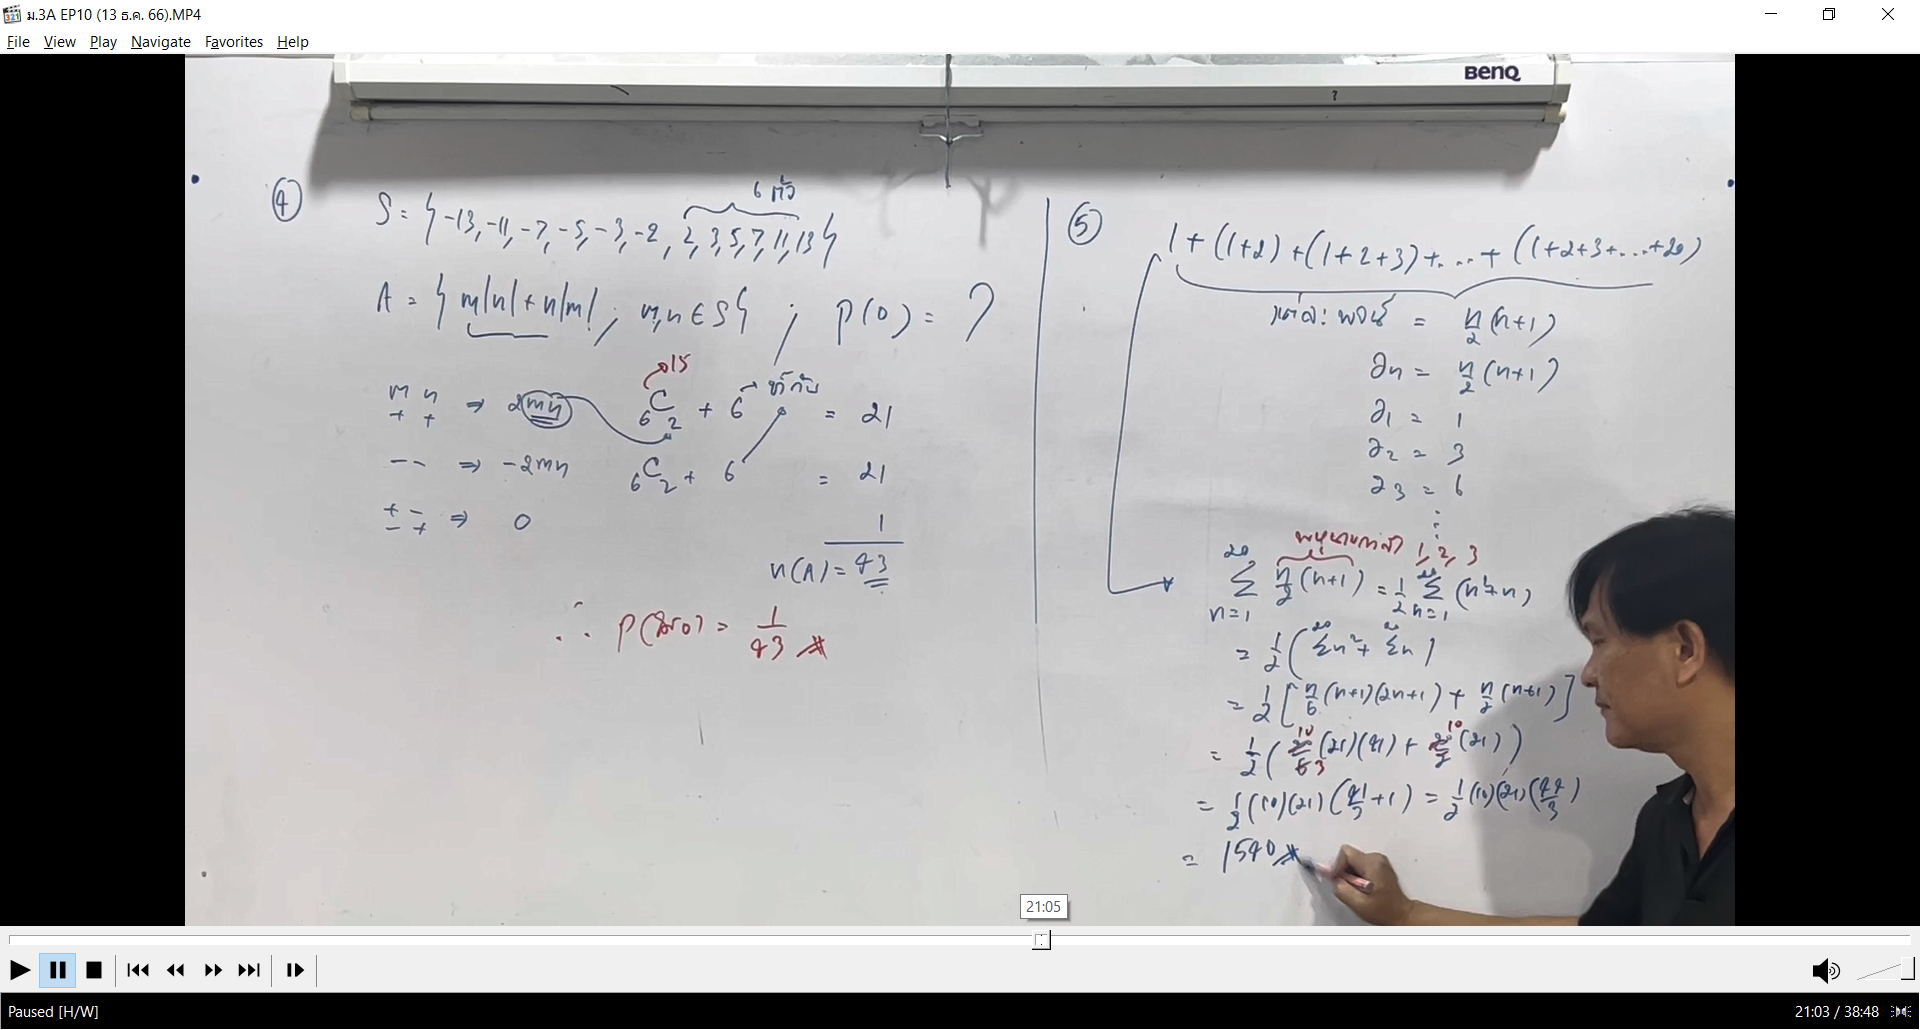 ม.3A EP10 (13 ธ.ค. 66).MP4
File View Play Navigate Favorites Help
BenQ
④
6 ตัว
S = { -13, -11, -7, -5, -3, -2, 2, 3, 5, 7, 11, 13 }
A = { m|n| + n|m| ; m,n ∈ S } ; P(0) = ?
15
m n
+ + ⇒ 2mn 6C2 + 6 → ซ้ำกัน = 21
- - ⇒ -2mn 6C2 + 6 = 21
+ -
- + ⇒ 0 1
n(A) = 43
∴ P(ได้0) = 1/43
⑤
1 + (1+2) + (1+2+3) + ... + (1+2+3+...+20)
แต่ละพจน์ = n/2 (n+1)
an = n/2 (n+1)
a1 = 1
a2 = 3
a3 = 6
⋮
1, 2, 3
20 Σ n=1 n/2 (n+1) = 1/2 20 Σ n=1 (n²+n)
= 1/2 ( 20 Σn² + 20 Σn )
= 1/2 [ n/6 (n+1)(2n+1) + n/2 (n+1) ]
= 1/2 ( 20/6 (21)(41) + 20/2 (21) )
10 3 10
= 1/2 (10)(21) ( 41/3 + 1 ) = 1/2 (10)(21) ( 44/3 )
= 1540
21:05
Paused [H/W]
21:03 / 38:48